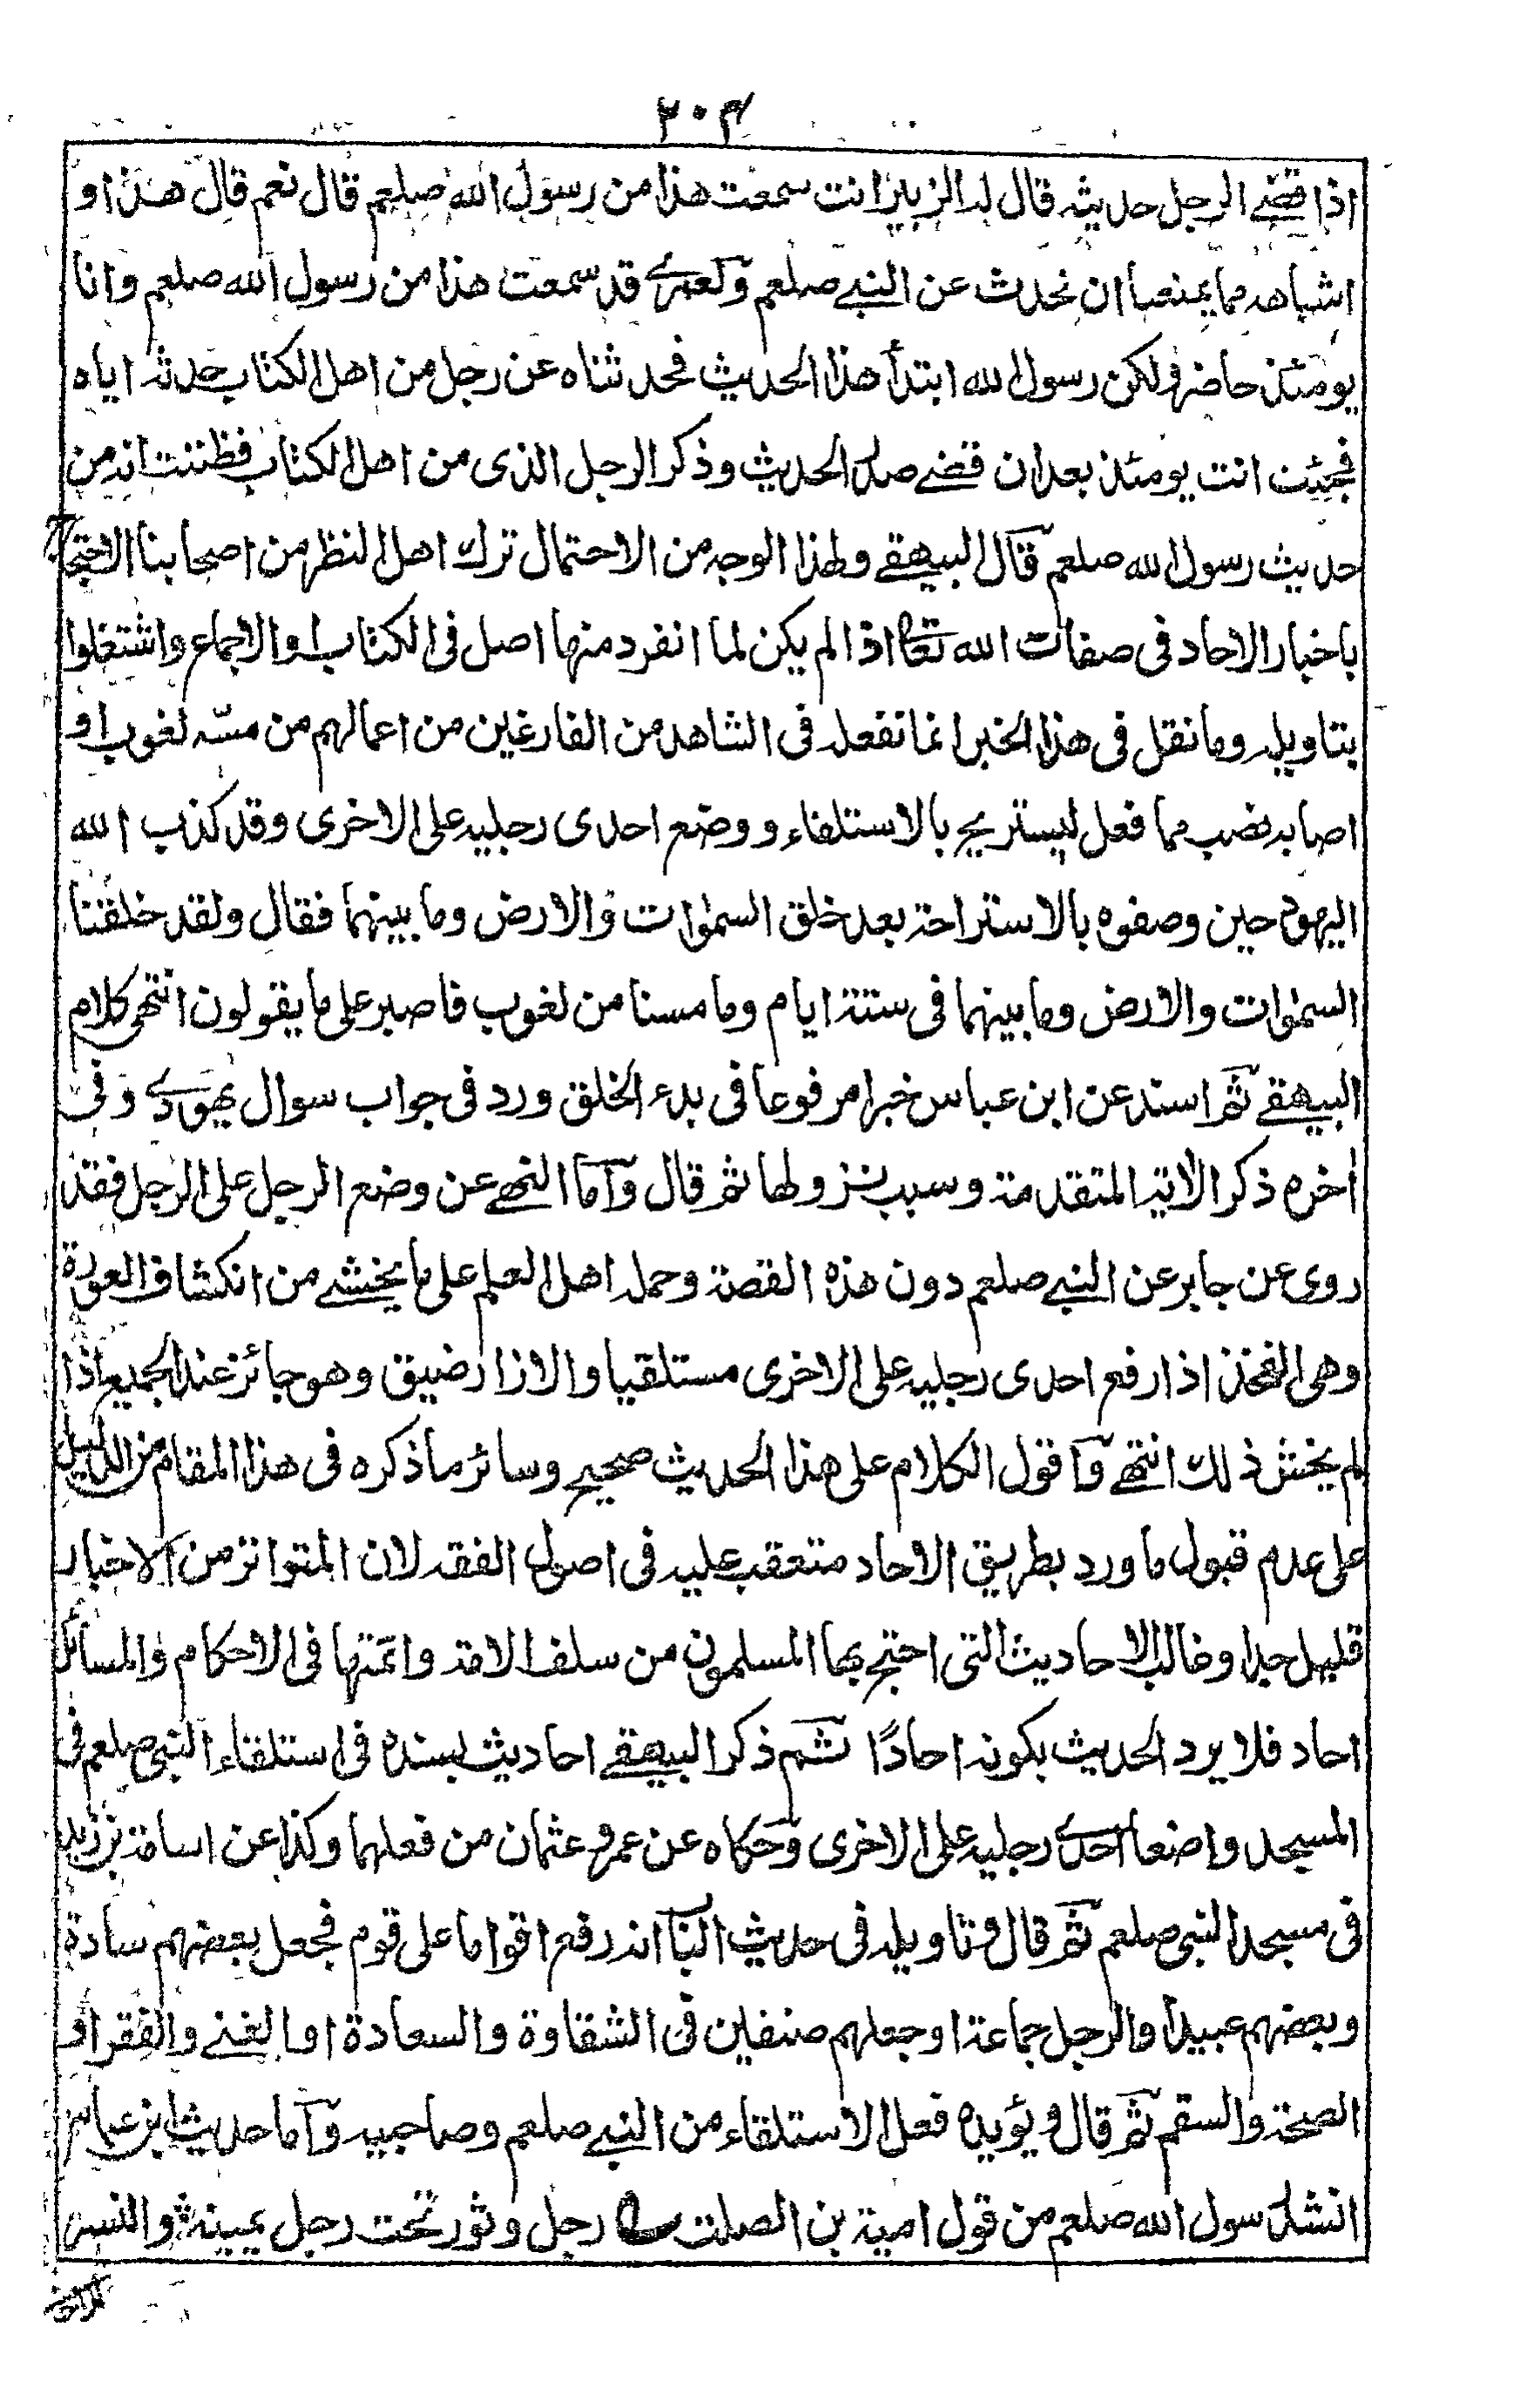 ٢٠٣
اذا قضے الرجل حديثه قال له الزبير انت سمعت هذا من رسول الله صلعم قال نعم قال هذا و
اشباهه مما يمنعنا ان نحدث عن النبے صلعم ولعمرے قد سمعت هذا من رسول الله صلعم وانا
يومئذ حاضر ولكن رسول الله ابتدأ هذا الحديث فحدثناه عن رجل من اهل الكتاب حدثه اياه
فجئت انت يومئذ بعد ان قضے صدر الحديث وذكر الرجل الذى من اهل الكتاب فظننت انه من
حديث رسول الله صلعم قال البيهقے ولهذا الوجه من الاحتمال ترك اهل النظر من اصحابنا الاحتجاج
باخبار الاحاد فى صفات الله تعا اذا لم يكن لما انفرد منها اصل فى الكتاب او الاجماع واشتغلوا
بتاويله وما نقل فى هذا الخبر انما نفعله فى الشاهد من الفارغين من اعمالهم من مسّه لغوب او
اصابه نصب مما فعل ليستريح بالاستلقاء ووضع احدى رجليه على الاخرى وقد كذب الله
اليهود حين وصفوه بالاستراحة بعد خلق السمٰوات والارض وما بينهما فقال ولقد خلقنا
السمٰوات والارض وما بينهما فى ستة ايام وما مسنا من لغوب فاصبر على ما يقولون انتهى كلام
البيهقے ثم اسند عن ابن عباس خبرا مرفوعا فى بدء الخلق ورد فى جواب سوال يهودے وفى
اٰخره ذكر الاية المتقدمة وسبب نزولها ثم قال واما النهے عن وضع الرجل على الرجل فقد
روى عن جابر عن النبے صلعم دون هذه القصة وحمله اهل العلم على ما يخشے من انكشاف العورة
وهى الفخذ اذا رفع احدى رجليه على الاخرى مستلقيا والازار ضيق وهو جائز عند الجميع اذا
لم يخش ذلك انتهے واقول الكلام على هذا الحديث صحيح وسائر ما ذكره فى هذا المقام من الدليل
على عدم قبول ما ورد بطريق الاحاد متعقب عليه فى اصول الفقه لان المتواتر من الاخبار
قليل جدا وغالب الاحاديث التى احتج بها المسلمون من سلف الامة وائمتها فى الاحكام والمسائل
احاد فلا يرد الحديث بكونه احادًا ثم ذكر البيهقے احاديث بسنده فى استلقاء النبى صلعم فى
المسجد واضعا احدے رجليه على الاخرى وحكاه عن عمر وعثمان من فعلهما وكذا عن اسامة بن زيد
فى مسجد النبى صلعم ثم قال وتاويله فى حديث البنا انه رفع اقواما على قوم فجعل بعضهم سادة
وبعضهم عبيدا والرجل جماعة اوجعلهم صنفين فى الشقاوة والسعادة او الغنے والفقر او
الصحة والسقم ثم قال ويؤيده فعل الاستلقاء من النبے صلعم وصاحبيه واما حديث ابن عباس
انشد رسول الله صلعم من قول امية بن الصلت رجل وثور تحت رجل يمينه والنسر